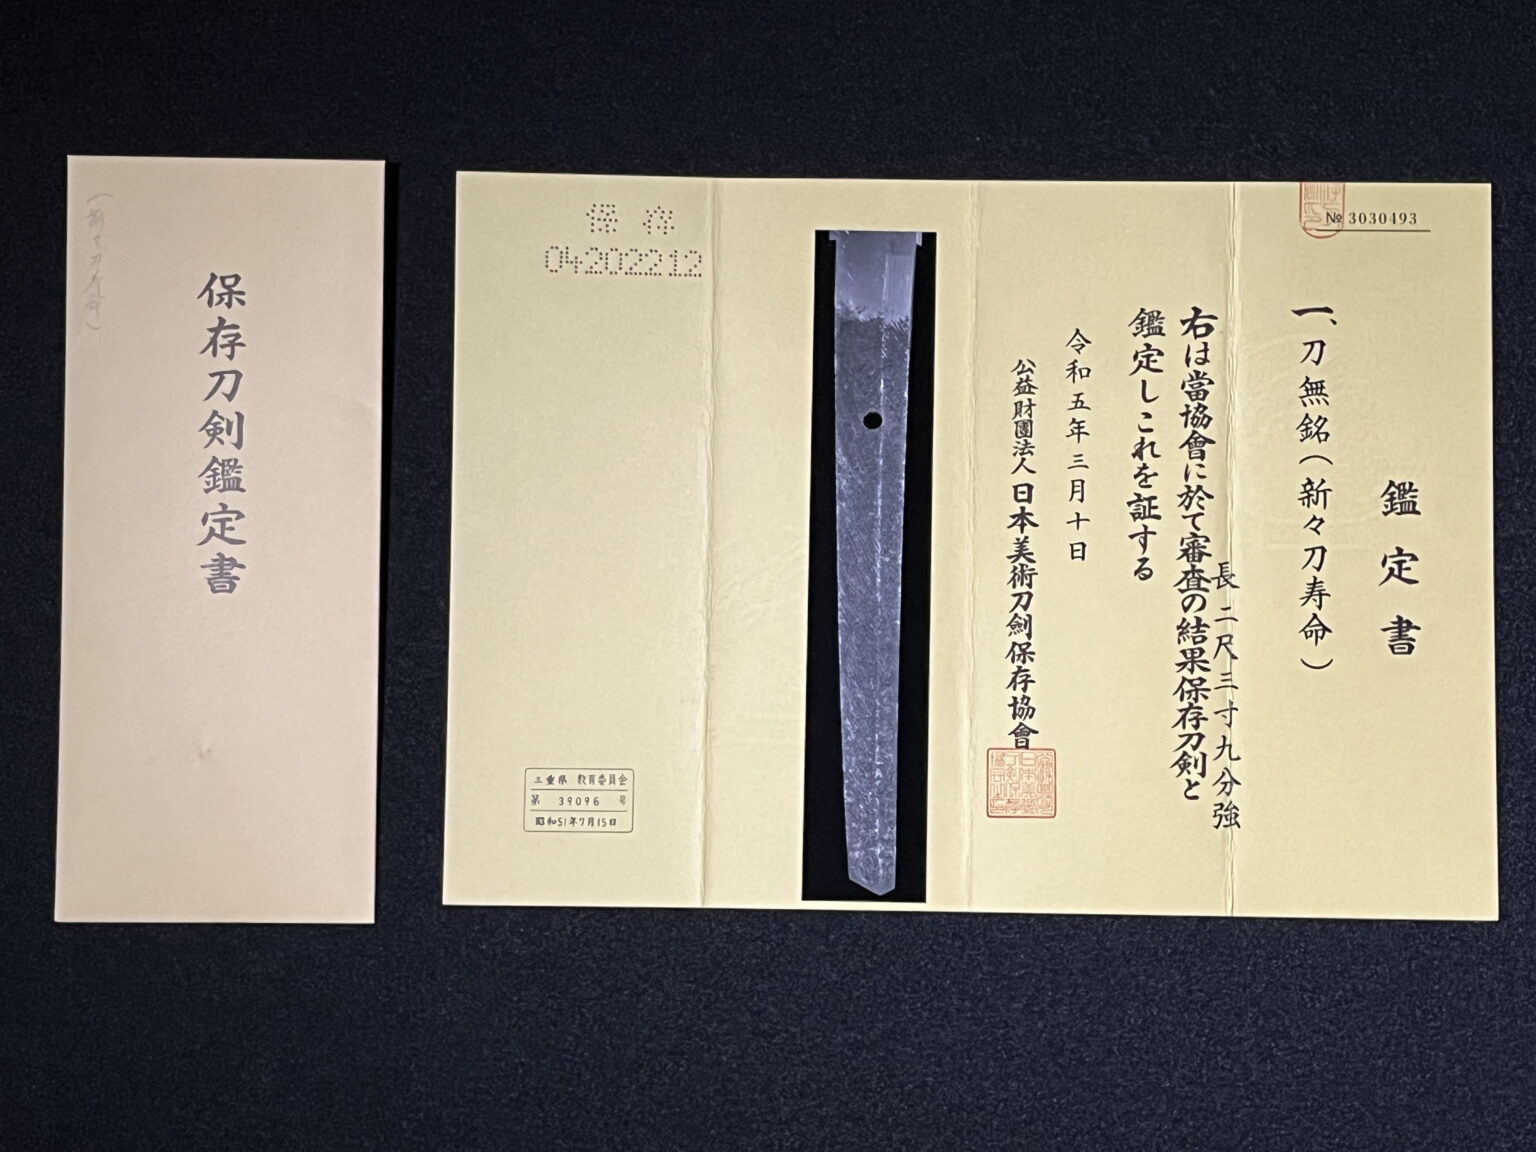 (新々刀寿命)
保存刀剣鑑定書
№ 3030493
鑑定書
一、刀無銘(新々刀寿命)
長二尺三寸九分強
右は當協會に於て審査の結果保存刀剣と
鑑定しこれを証する
令和五年三月十日
公益財團法人日本美術刀劍保存協會
保存
04202212
三重県 教育委員会
第 39096 号
昭和51年7月15日